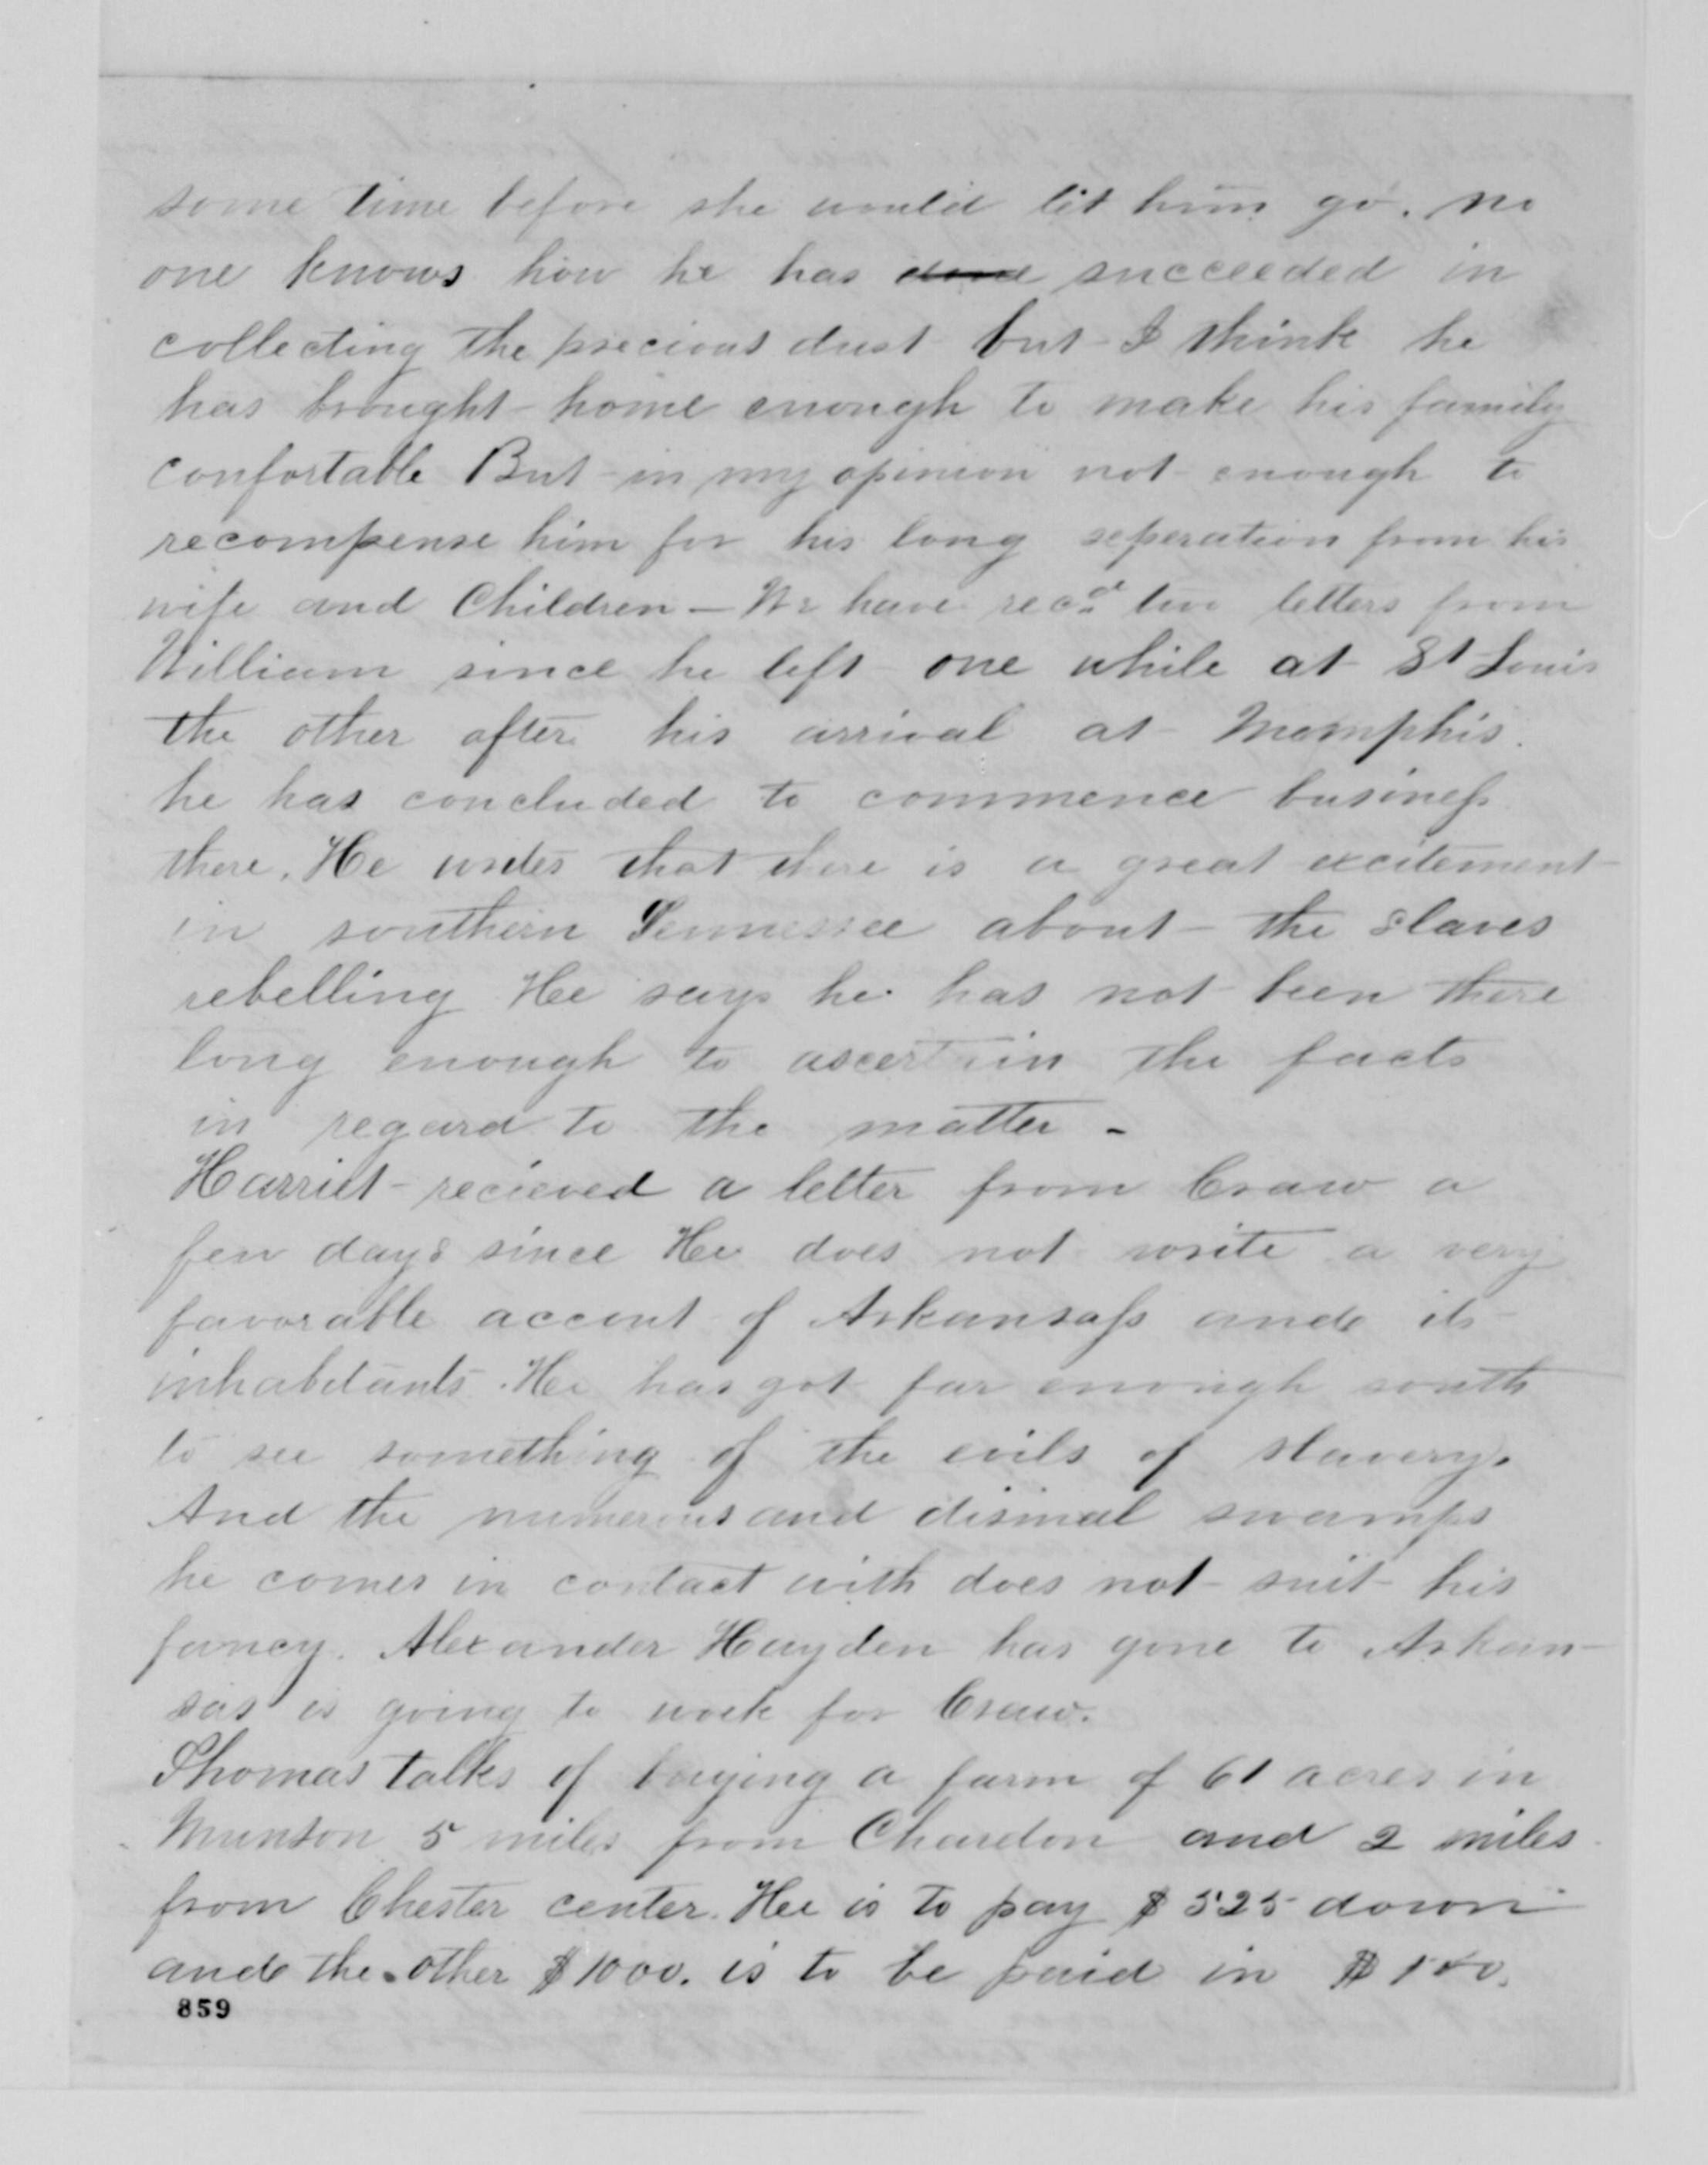 some time before she would let him go. no
one knows how he has done succeeded in
collecting the precious dust but I think he
has brought home enough to make his family
confortable But in my opinion not enough to
recompense him for his long seperation from his
wife and Children – We have recd two letters from
William since he left one while at St Louis
the other after his arrival at Memphis.
he has concluded to commence business
there. He writes that there is a great excitement
in southern Tennessee about the slaves
rebelling He says he has not been there
long enough to ascertain the facts
in regard to the matter –
Harriet recieved a letter from Craw a
few days since He does not write a very
favorable account of Arkansass and its
inhabitants. He has got far enough south
to see something of the evils of slavery.
And the numerous and dismal swamps
he comes in contact with does not suit his
fancy. Alexander Hayden has gone to Arkan-
sas is going to work for Craw.
Thomas talks of buying a farm of 61 acres in
Munson 5 miles from Chardon and 2 miles
from Chester center. He is to pay $525 down
and the other $1000. is to be paid in $100.
859